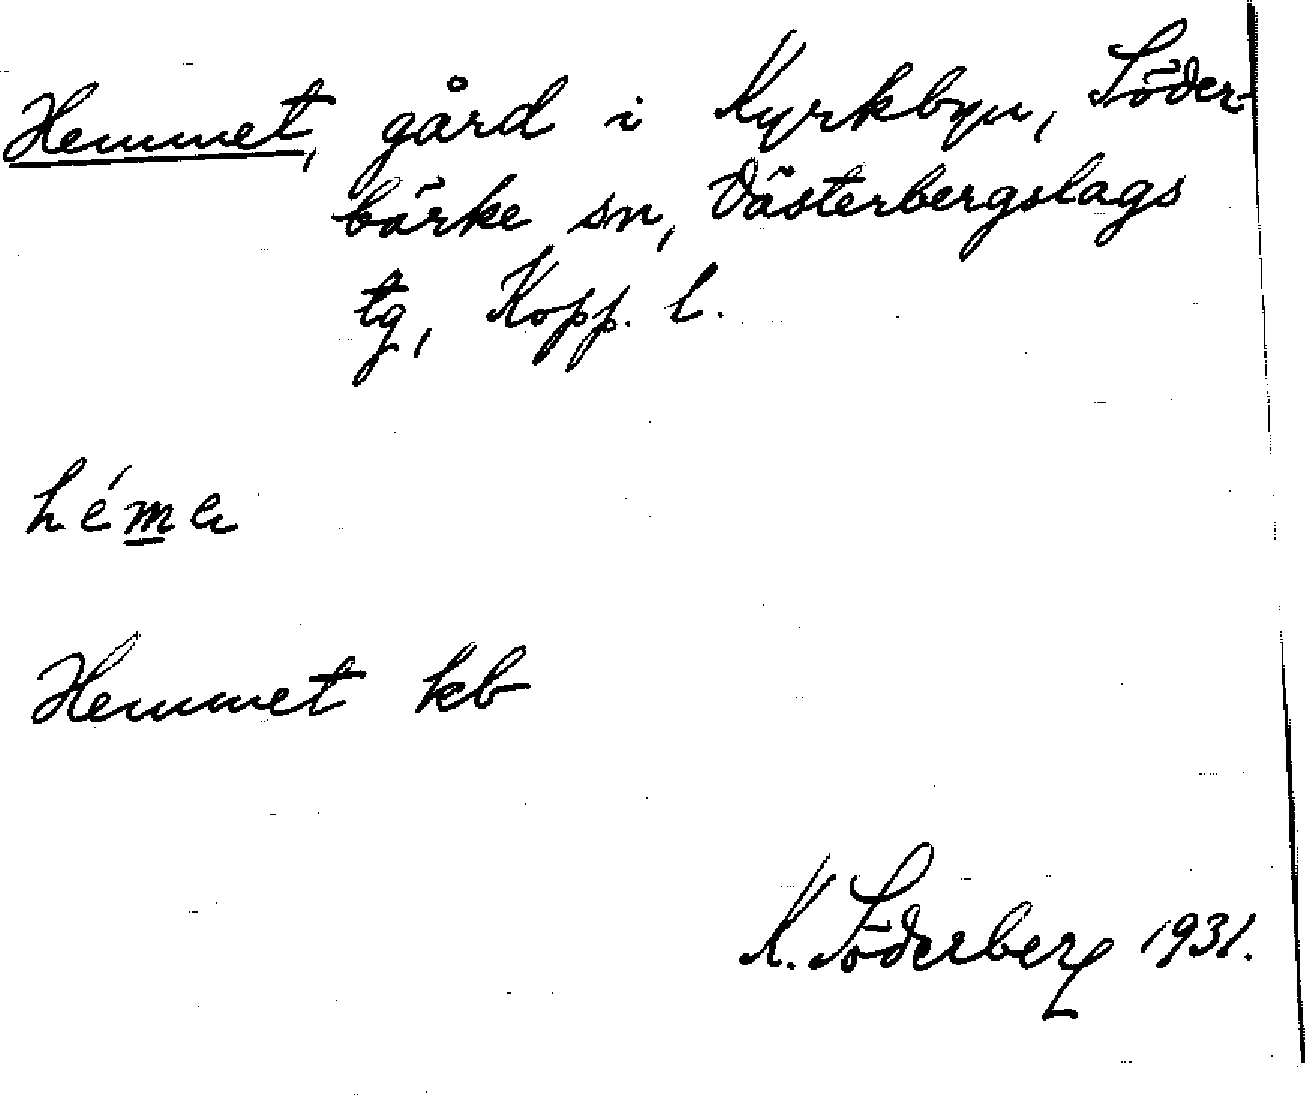 Hemmet, gård i Kyrkbyn, Söder-
bärke sn, Västerbergslags
tg, Kopp. l.
héma
Hemmet kb
K. Söderberg 1931.